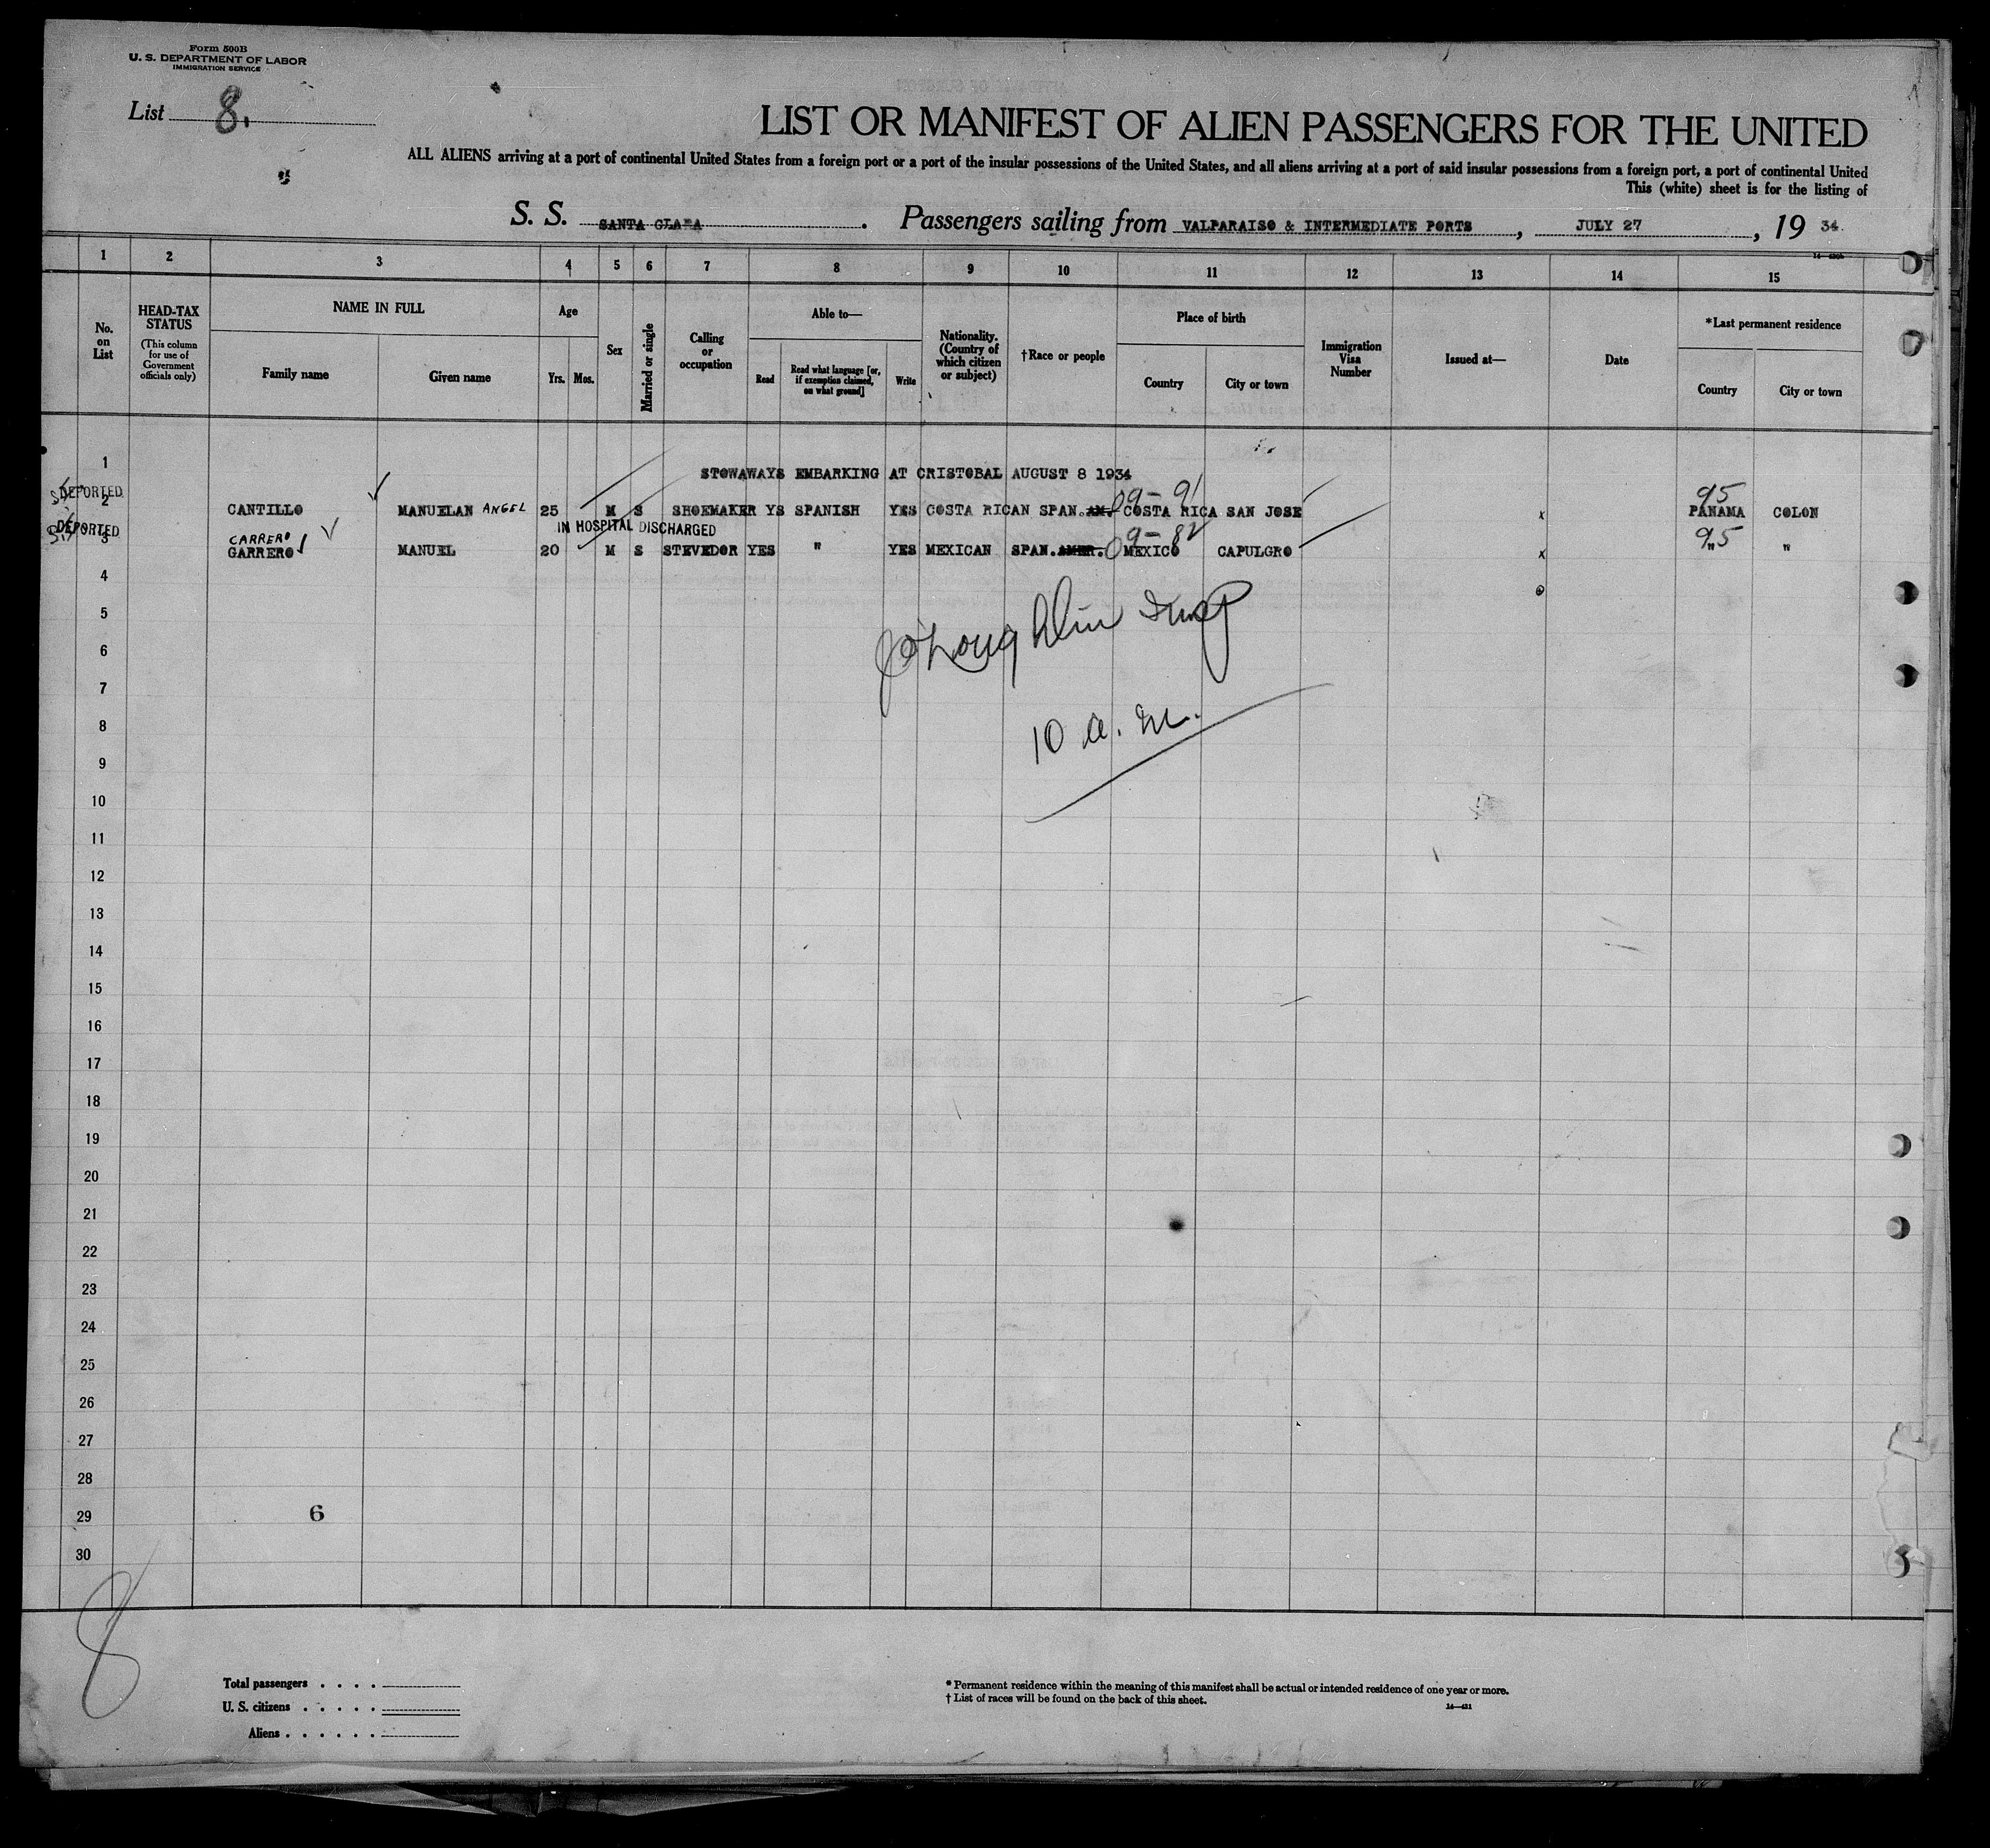 Form 500B
U. S. DEPARTMENT OF LABOR
IMMIGRATION SERVICE
List 8.
LIST OR MANIFEST OF ALIEN PASSENGERS FOR THE UNITED
ALL ALIENS arriving at a port of continental United States from a foreign port or a port of the insular possessions of the United States, and all aliens arriving at a port of said insular possessions from a foreign port, a port of continental United
This (white) sheet is for the listing of
S. S. SANTA CLARA. Passengers sailing from VALPARAISO & INTERMEDIATE PORTS, JULY 27, 19 34.
1 2 3 4 5 6 7 8 9 10 11 12 13 14 15
No. on List
HEAD-TAX STATUS (This column for use of Government officials only)
NAME IN FULL
Family name Given name
Age
Yrs. Mos.
Sex
Married or single
Calling or occupation
Able to—
Read Read what language [or, if exemption claimed, on what ground] Write
Nationality. (Country of which citizen or subject)
†Race or people
Place of birth
Country City or town
Immigration Visa Number
Issued at—
Date
*Last permanent residence
Country City or town
1 STOWAWAYS EMBARKING AT CRISTOBAL AUGUST 8 1934
DEPORTED 09-91 95
2 CANTILLO MANUELAN ANGEL 25 M S SHOEMAKER YS SPANISH YES COSTA RICAN SPAN. AM. COSTA RICA SAN JOSE x PANAMA COLON
DEPORTED IN HOSPITAL DISCHARGED
CARRERO 09-82 95
3 GARRERO MANUEL 20 M S STEVEDOR YES " YES MEXICAN SPAN. AMER. MEXICO CAPULGRO x " "
4
5
6
7
8
10 a. m.
9
10
11
12
13
14
15
16
17
18
19
20
21
22
23
24
25
26
27
28
29 6
30
8
Total passengers . . . .
U. S. citizens . . . . .
Aliens . . . . . .
* Permanent residence within the meaning of this manifest shall be actual or intended residence of one year or more.
† List of races will be found on the back of this sheet.
14—421